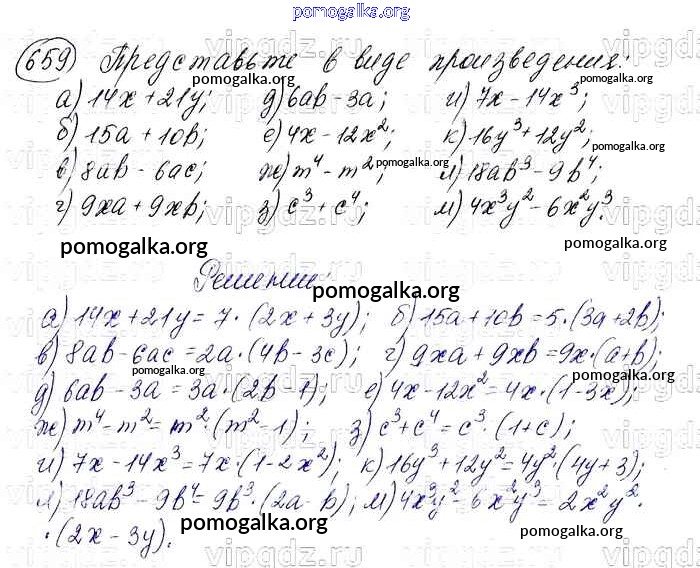 pomogalka.org
659) Представьте в виде произведения:
а) 14x + 21y; д) 6ab - 3a; и) 7x - 14x³;
б) 15a + 10b; е) 4x - 12x²; к) 16y³ + 12y²;
в) 8ab - 6ac; ж) m⁴ - m²; л) 18ab³ - 9b⁴;
г) 9xa + 9xb; з) c³ + c⁴; м) 4x³y² - 6x²y³.
pomogalka.org
Решение:
pomogalka.org
а) 14x + 21y = 7·(2x + 3y); б) 15a + 10b = 5·(3a + 2b);
в) 8ab - 6ac = 2a·(4b - 3c); г) 9xa + 9xb = 9x·(a + b);
д) 6ab - 3a = 3a·(2b - 1); е) 4x - 12x² = 4x·(1 - 3x);
ж) m⁴ - m² = m²·(m² - 1); з) c³ + c⁴ = c³·(1 + c);
и) 7x - 14x³ = 7x·(1 - 2x²); к) 16y³ + 12y² = 4y²·(4y + 3);
л) 18ab³ - 9b⁴ = 9b³·(2a - b); м) 4x³y² - 6x²y³ = 2x²y²·
·(2x - 3y).
pomogalka.org